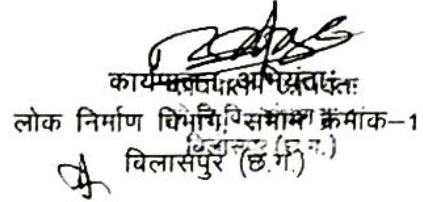 कार्यपालन अभियंता
लोक निर्माण विभाग, संभाग क्रमांक-1
बिलासपुर (छ.ग.)